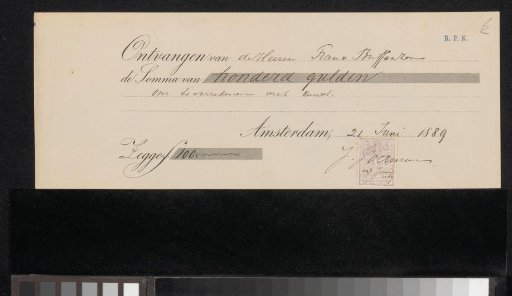 R. P. K.
Ontvangen van de Heeren Frans Buffa & Zonen
de Somma van honderd gulden
om te verrekenen met
Amsterdam, 21 Juni 1889
Zegge f 100